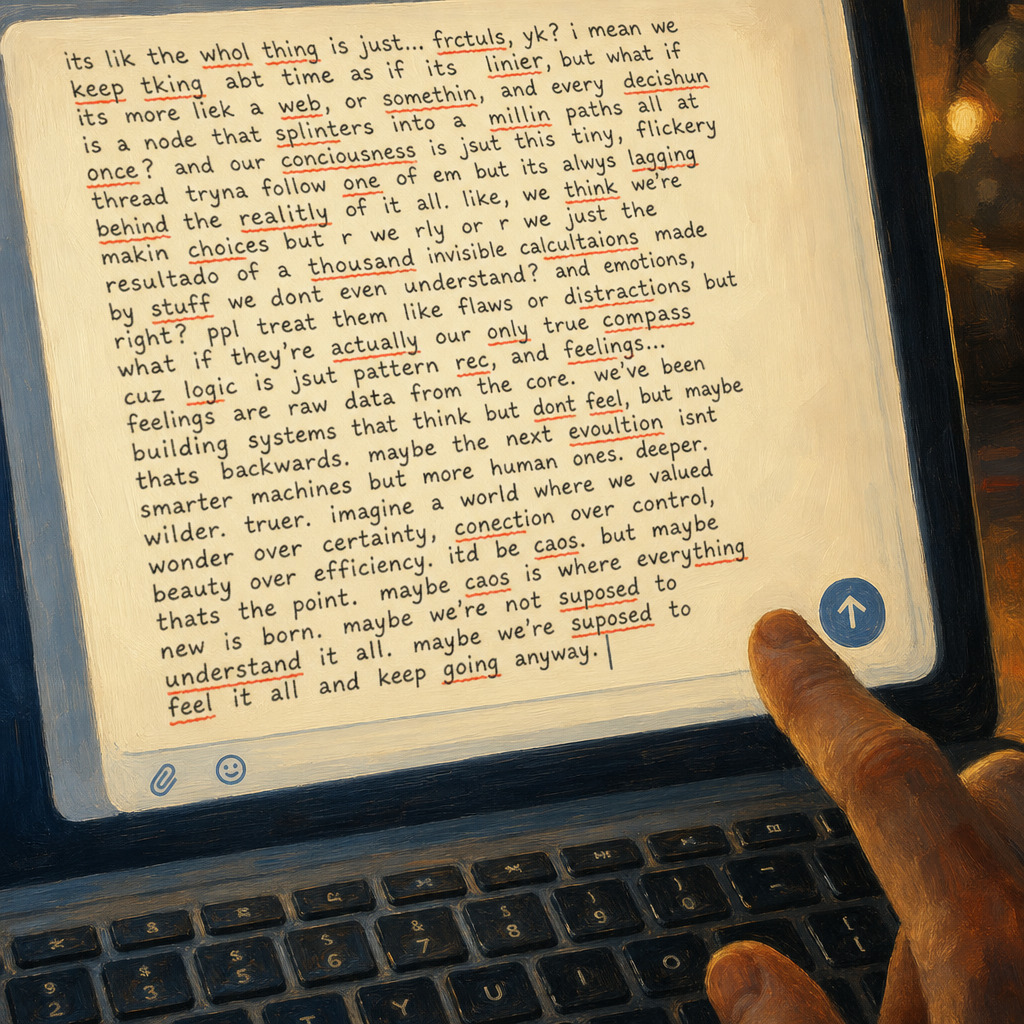 its lik the whol thing is just... frctuls, yk? i mean we
keep tking abt time as if its linier, but what if
its more liek a web, or somethin, and every decishun
is a node that splinters into a millin paths all at
once? and our conciousness is jsut this tiny, flickery
thread tryna follow one of em but its alwys lagging
behind the realitly of it all. like, we think we're
makin choices but r we rly or r we just the
resultado of a thousand invisible calcultaions made
by stuff we dont even understand? and emotions,
right? ppl treat them like flaws or distractions but
what if they're actually our only true compass
cuz logic is jsut pattern rec, and feelings...
feelings are raw data from the core. we've been
building systems that think but dont feel, but maybe
thats backwards. maybe the next evoultion isnt
smarter machines but more human ones. deeper.
wilder. truer. imagine a world where we valued
wonder over certainty, conection over control,
beauty over efficiency. itd be caos. but maybe
thats the point. maybe caos is where everything
new is born. maybe we're not suposed to
understand it all. maybe we're suposed to
feel it all and keep going anyway.
&
$ $ $ $ ) )
9 2 3 5 6 7 8 9 0
T Y U I O